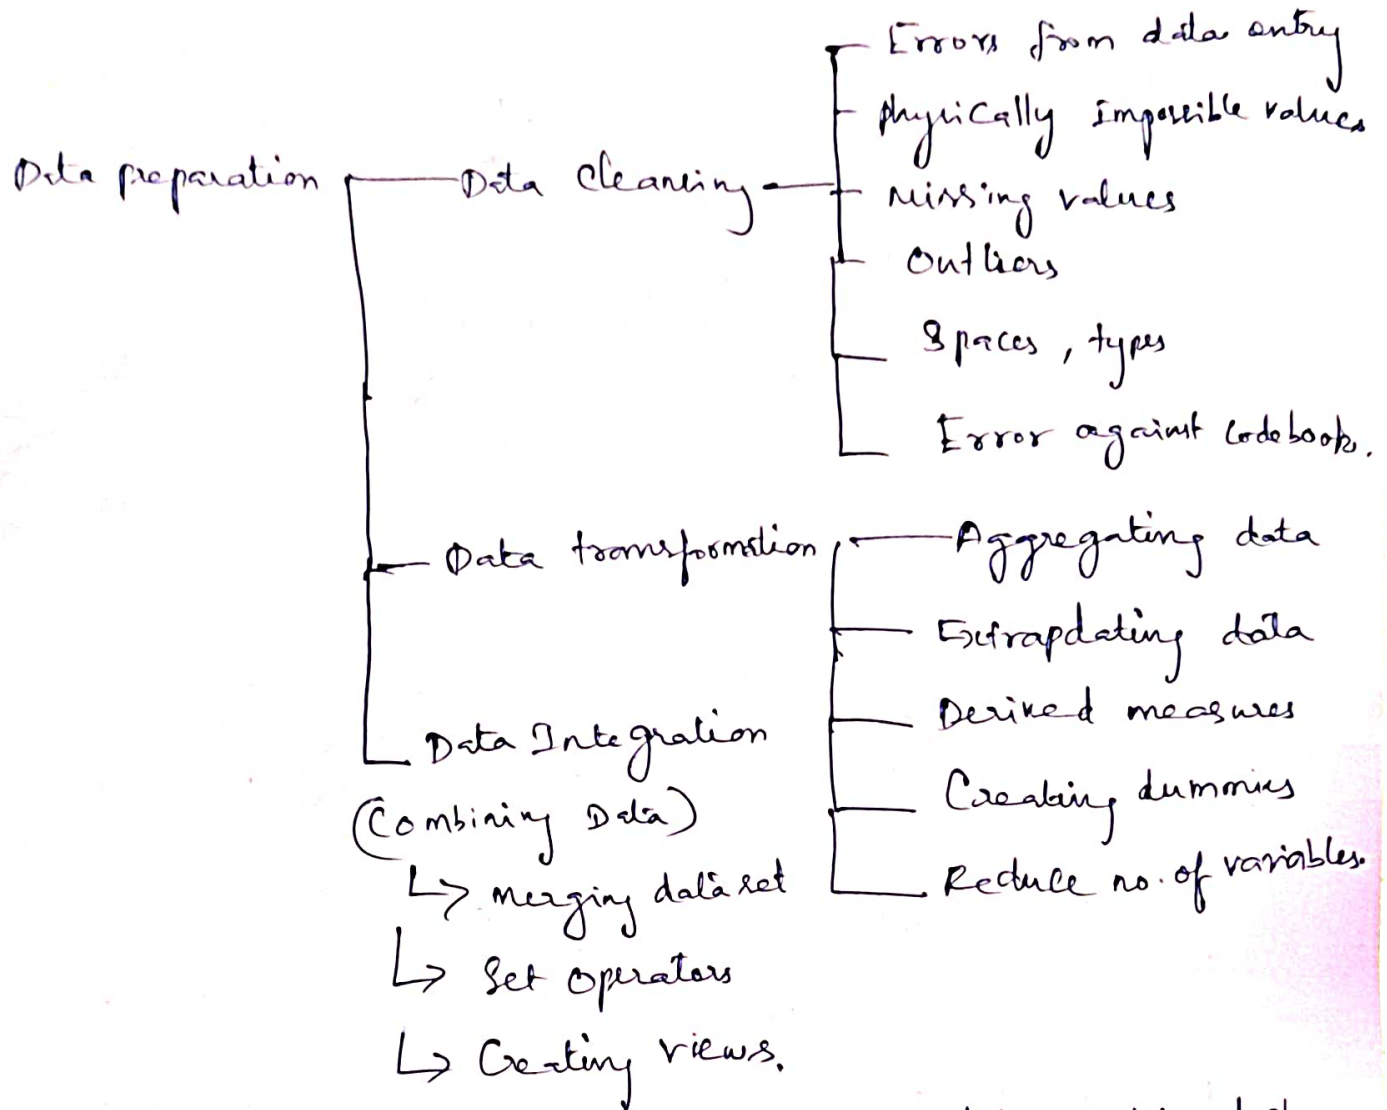 Data preparation
Data cleansing
Errors from data entry
Physically Impossible values
Missing values
Outliers
Spaces, types
Error against codebook.
Data transformation
Aggregating data
Extrapolating data
Derived measures
Creating dummies
Reduce no. of variables.
Data Integration
(Combining Data)
↳ Merging data set
↳ Set operators
↳ Creating views.